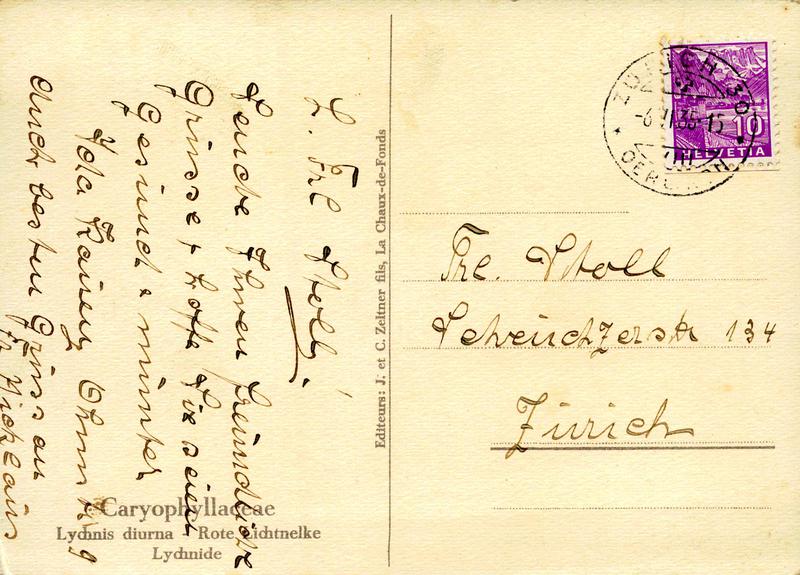 L. Frl Stoll!
Sende Ihnen freundliche
Grüsse, & hoffe Sie seien
Gesund & munter.
Ida
Auch besten Gruss an
Fr Nicklaus
Caryophyllaceae
Lychnis diurna - Rote Lichtnelke
Lychnide
Editeurs: J. et C. Zeltner fils, La Chaux-de-Fonds
ZÜRICH 30
35-15
OERLIKON
10
HELVETIA
Frl. Stoll
Scheuchzerstr 134
Zürich